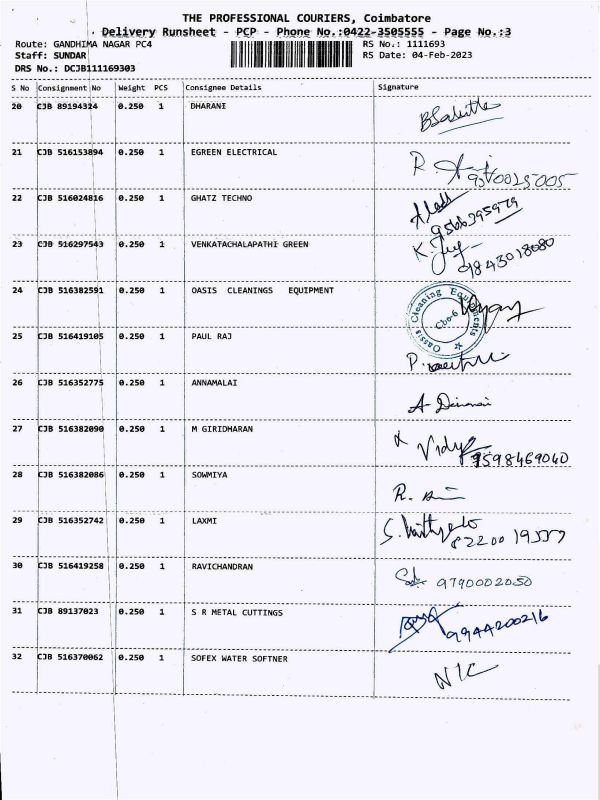 THE PROFESSIONAL COURIERS, Coimbatore
Delivery Runsheet - PCP - Phone No.:0422-3505555 - Page No.:3
Route: GANDHIMA NAGAR PC4
RS No.: 1111693
Staff: SUNDAR
RS Date: 04-Feb-2023
DRS No.: DCJB111169303
S No Consignment No Weight PCS Consignee Details Signature
20 CJB 89194324 0.250 1 DHARANI
21 CJB 516153894 0.250 1 EGREEN ELECTRICAL
22 CJB 516024816 0.250 1 GHATZ TECHNO
9566395979
23 CJB 516297543 0.250 1 VENKATACHALAPATHI GREEN
9843018080
24 CJB 516382591 0.250 1 OASIS CLEANINGS EQUIPMENT
Oassis Cleaning Equipments
Cbe-6
25 CJB 516419105 0.250 1 PAUL RAJ
26 CJB 516352775 0.250 1 ANNAMALAI
27 CJB 516382090 0.250 1 M GIRIDHARAN
9598469040
28 CJB 516382086 0.250 1 SOWMIYA
29 CJB 516352742 0.250 1 LAXMI
30 CJB 516419258 0.250 1 RAVICHANDRAN
9790002050
31 CJB 89137023 0.250 1 S R METAL CUTTINGS
9944200216
32 CJB 516370062 0.250 1 SOFEX WATER SOFTNER